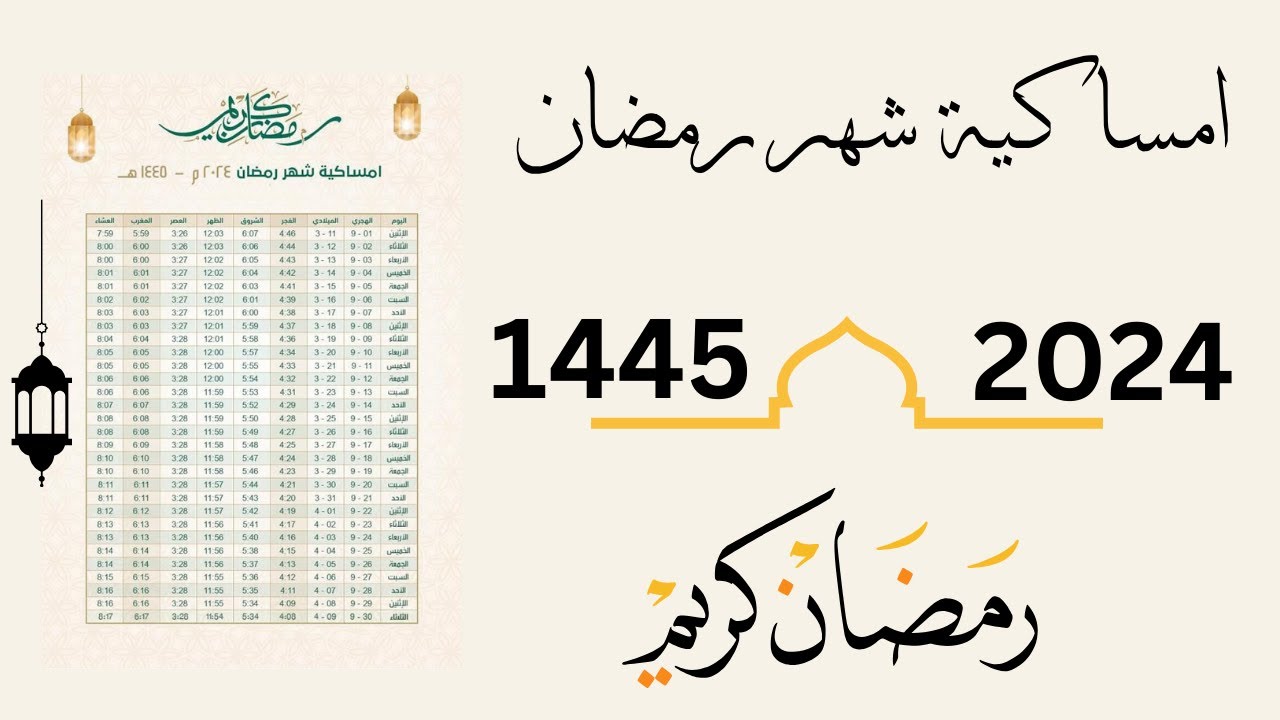 امساكية شهر رمضان
1445 2024
رَمَضَانْ كَرِيمْ
رمضان كريم
امساكية شهر رمضان ٢٠٢٤ م - ١٤٤٥ هـ
اليوم الهجري الميلادي الفجر الشروق الظهر العصر المغرب العشاء
الإثنين 01 - 9 11 - 3 4:46 6:07 12:03 3:26 5:59 7:59
الثلاثاء 02 - 9 12 - 3 4:44 6:06 12:03 3:26 6:00 8:00
الاربعاء 03 - 9 13 - 3 4:43 6:05 12:02 3:27 6:00 8:00
الخميس 04 - 9 14 - 3 4:42 6:04 12:02 3:27 6:01 8:01
الجمعة 05 - 9 15 - 3 4:41 6:03 12:02 3:27 6:01 8:01
السبت 06 - 9 16 - 3 4:39 6:01 12:02 3:27 6:02 8:02
الاحد 07 - 9 17 - 3 4:38 6:00 12:01 3:27 6:03 8:03
الإثنين 08 - 9 18 - 3 4:37 5:59 12:01 3:27 6:03 8:03
الثلاثاء 09 - 9 19 - 3 4:36 5:58 12:01 3:28 6:04 8:04
الاربعاء 10 - 9 20 - 3 4:34 5:57 12:00 3:28 6:05 8:05
الخميس 11 - 9 21 - 3 4:33 5:55 12:00 3:28 6:05 8:05
الجمعة 12 - 9 22 - 3 4:32 5:54 12:00 3:28 6:06 8:06
السبت 13 - 9 23 - 3 4:31 5:53 11:59 3:28 6:06 8:06
الاحد 14 - 9 24 - 3 4:29 5:52 11:59 3:28 6:07 8:07
الإثنين 15 - 9 25 - 3 4:28 5:50 11:59 3:28 6:08 8:08
الثلاثاء 16 - 9 26 - 3 4:27 5:49 11:59 3:28 6:08 8:08
الاربعاء 17 - 9 27 - 3 4:25 5:48 11:58 3:28 6:09 8:09
الخميس 18 - 9 28 - 3 4:24 5:47 11:58 3:28 6:10 8:10
الجمعة 19 - 9 29 - 3 4:23 5:46 11:58 3:28 6:10 8:10
السبت 20 - 9 30 - 3 4:21 5:44 11:57 3:28 6:11 8:11
الاحد 21 - 9 31 - 3 4:20 5:43 11:57 3:28 6:11 8:11
الإثنين 22 - 9 01 - 4 4:19 5:42 11:57 3:28 6:12 8:12
الثلاثاء 23 - 9 02 - 4 4:17 5:41 11:56 3:28 6:13 8:13
الاربعاء 24 - 9 03 - 4 4:16 5:40 11:56 3:28 6:13 8:13
الخميس 25 - 9 04 - 4 4:15 5:38 11:56 3:28 6:14 8:14
الجمعة 26 - 9 05 - 4 4:13 5:37 11:56 3:28 6:14 8:14
السبت 27 - 9 06 - 4 4:12 5:36 11:55 3:28 6:15 8:15
الاحد 28 - 9 07 - 4 4:11 5:35 11:55 3:28 6:16 8:16
الإثنين 29 - 9 08 - 4 4:09 5:34 11:55 3:28 6:16 8:16
الثلاثاء 30 - 9 09 - 4 4:08 5:34 11:54 3:28 6:17 8:17